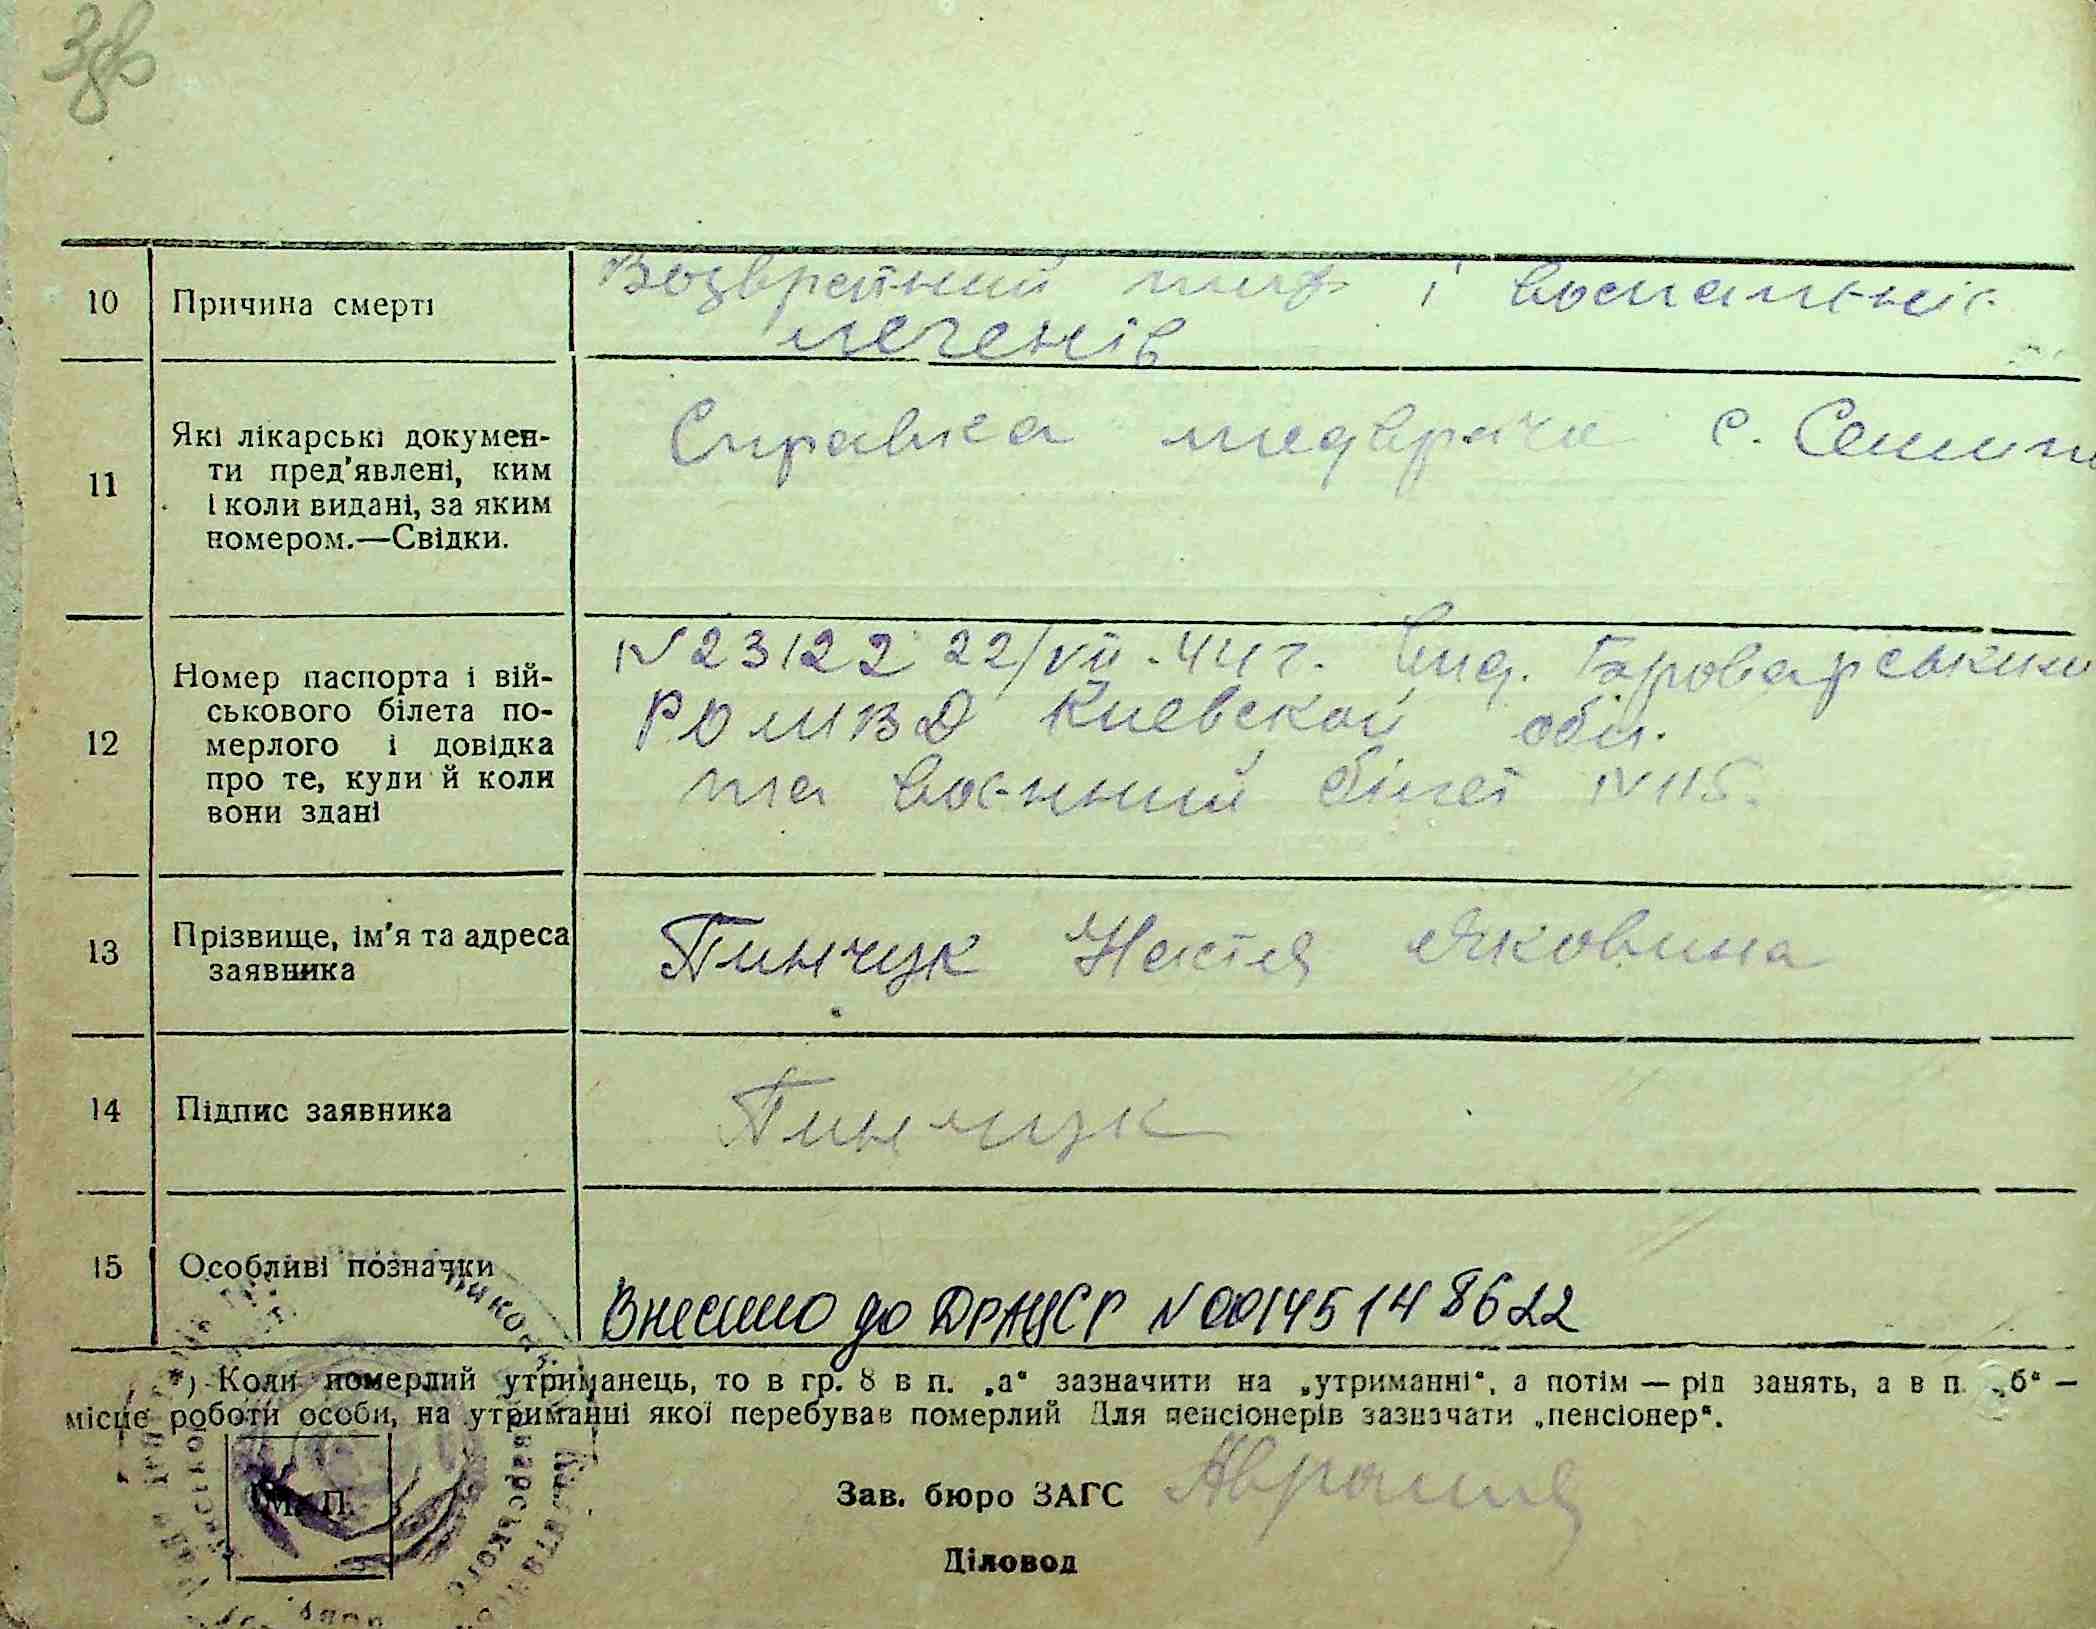 10 Причина смерті Возвратний тиф і воспаленіє
печенів
11 Які лікарські докумен-
ти пред'явлені, ким
і коли видані, за яким
номером.—Свідки.
Справка медврача с.
12 Номер паспорта і вій-
ськового білета по-
мерлого і довідка
про те, куди й коли
вони здані
N 23122 22/VII-44 г. вид. Броварським
РОМВД Киевской обл.
та воєнний білет N 115.
13 Прізвище, ім'я та адреса
заявника
Пинчук Настя Яковина
14 Підпис заявника Пинчук
15 Особливі позначки
Внесено до ДРАЦСР N 00145148622
*) Коли померлий утриманець, то в гр. 8 в п. „а“ зазначити на „утриманні“, а потім — рід занять, а в п. „б“ —
місце роботи особи, на утриманні якої перебував померлий Для пенсіонерів зазначати „пенсіонер“.
М. П.
Зав. бюро ЗАГС
Діловод